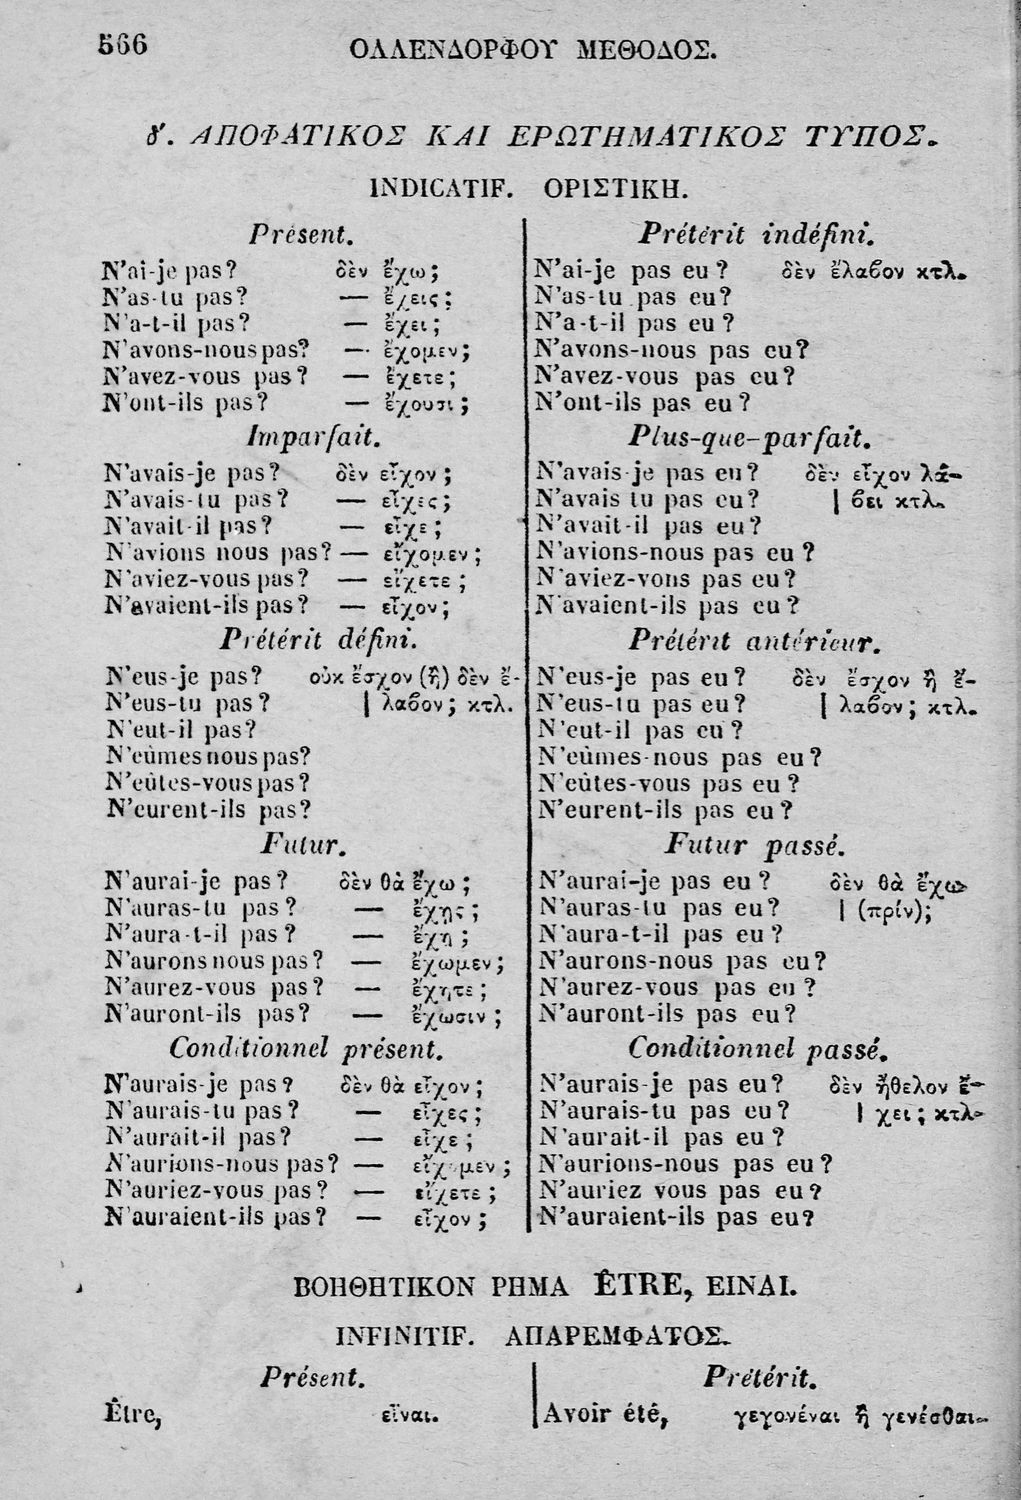 566
ΟΛΛΕΝΔΟΡΦΟΥ ΜΕΘΟΔΟΣ.
δ'. ΑΠΟΦΑΤΙΚΟΣ ΚΑΙ ΕΡΩΤΗΜΑΤΙΚΟΣ ΤΥΠΟΣ.
INDICATIF. ΟΡΙΣΤΙΚΗ.
Présent.
N'ai-je pas? δὲν ἔχω;
N'as-tu pas? — ἔχεις;
N'a-t-il pas? — ἔχει;
N'avons-nous pas? — ἔχομεν;
N'avez-vous pas? — ἔχετε;
N'ont-ils pas? — ἔχουσι;
Imparfait.
N'avais-je pas? δὲν εἶχον;
N'avais-tu pas? — εἶχες;
N'avait-il pas? — εἶχε;
N'avions nous pas? — εἴχομεν;
N'aviez-vous pas? — εἴχετε;
N'avaient-ils pas? — εἶχον;
Prétérit défini.
N'eus-je pas? οὐκ ἔσχον (ἢ) δὲν ἔ-
N'eus-tu pas? | λαβον; κτλ.
N'eut-il pas?
N'eûmes nous pas?
N'eûtes-vous pas?
N'eurent-ils pas?
Futur.
N'aurai-je pas? δὲν θὰ ἔχω;
N'auras-tu pas? — ἔχῃς;
N'aura-t-il pas? — ἔχῃ;
N'aurons nous pas? — ἔχωμεν;
N'aurez-vous pas? — ἔχητε;
N'auront-ils pas? — ἔχωσιν;
Conditionnel présent.
N'aurais-je pas? δὲν θὰ εἶχον;
N'aurais-tu pas? — εἶχες;
N'aurait-il pas? — εἶχε;
N'aurions-nous pas? — εἴχομεν;
N'auriez-vous pas? — εἴχετε;
N'auraient-ils pas? — εἶχον;
Prétérit indéfini.
N'ai-je pas eu? δὲν ἔλαβον κτλ.
N'as-tu pas eu?
N'a-t-il pas eu?
N'avons-nous pas eu?
N'avez-vous pas eu?
N'ont-ils pas eu?
Plus-que-parfait.
N'avais-je pas eu? δὲν εἶχον λά-
N'avais tu pas eu? | βει κτλ.
N'avait-il pas eu?
N'avions-nous pas eu?
N'aviez-vous pas eu?
N'avaient-ils pas eu?
Prétérit antérieur.
N'eus-je pas eu? δὲν ἔσχον ἢ ἔ-
N'eus-tu pas eu? | λαβον; κτλ.
N'eut-il pas eu?
N'eûmes-nous pas eu?
N'eûtes-vous pas eu?
N'eurent-ils pas eu?
Futur passé.
N'aurai-je pas eu? δὲν θὰ ἔχω
N'auras-tu pas eu? | (πρίν);
N'aura-t-il pas eu?
N'aurons-nous pas eu?
N'aurez-vous pas eu?
N'auront-ils pas eu?
Conditionnel passé.
N'aurais-je pas eu? δὲν ἤθελον ἔ-
N'aurais-tu pas eu? | χει; κτλ.
N'aurait-il pas eu?
N'aurions-nous pas eu?
N'auriez vous pas eu?
N'auraient-ils pas eu?
ΒΟΗΘΗΤΙΚΟΝ ΡΗΜΑ ÊTRE, ΕΙΝΑΙ.
INFINITIF. ΑΠΑΡΕΜΦΑΤΟΣ.
Présent.
Être, εἶναι.
Prétérit.
Avoir été, γεγονέναι ἢ γενέσθαι.